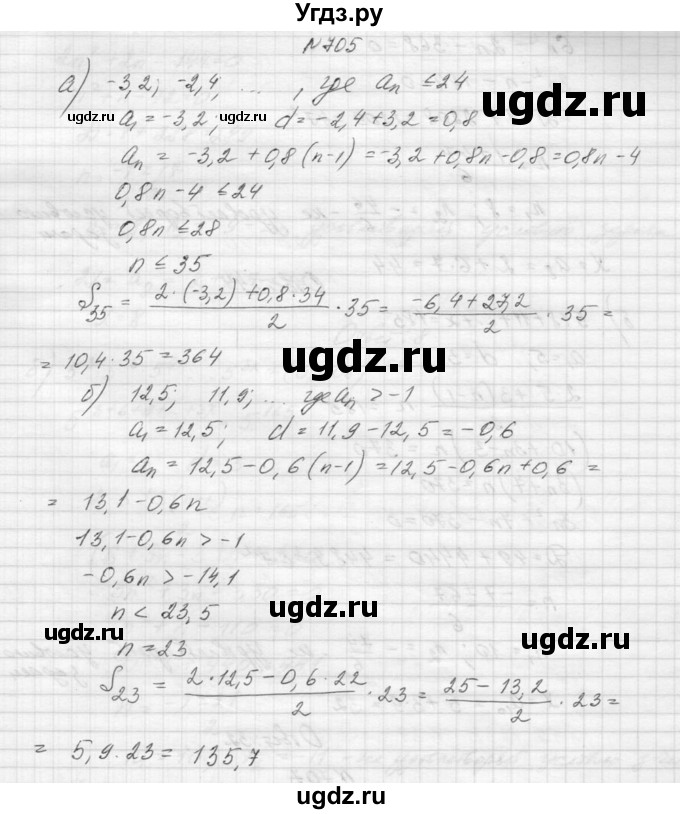 Угдз.ру
№705
а) -3,2; -2,4; ... , где aₙ ≤ 24
a₁ = -3,2; d = -2,4 + 3,2 = 0,8
aₙ = -3,2 + 0,8(n-1) = -3,2 + 0,8n - 0,8 = 0,8n - 4
0,8n - 4 ≤ 24
0,8n ≤ 28
n ≤ 35
S₃₅ = (2·(-3,2) + 0,8·34)/2 · 35 = (-6,4 + 27,2)/2 · 35 =
= 10,4·35 = 364
б) 12,5; 11,9; ... где aₙ > -1
a₁ = 12,5; d = 11,9 - 12,5 = -0,6
aₙ = 12,5 - 0,6(n-1) = 12,5 - 0,6n + 0,6 =
= 13,1 - 0,6n
13,1 - 0,6n > -1
-0,6n > -14,1
n < 23,5
n = 23
S₂₃ = (2·12,5 - 0,6·22)/2 · 23 = (25 - 13,2)/2 · 23 =
= 5,9·23 = 135,7
ugdz.ru
ugdz.ru
ugdz.ru
ugdz.ru
ugdz.ru
ugdz.ru
ugdz.ru
ugdz.ru
ugdz.ru
ugdz.ru
ugdz.ru